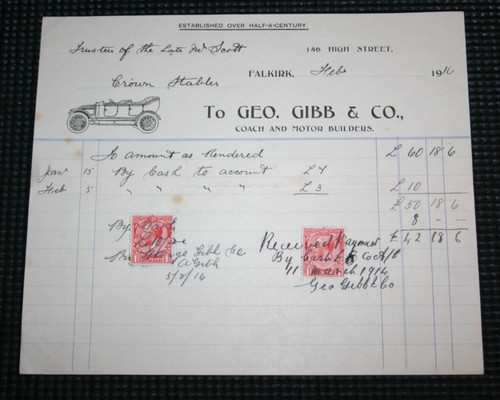 ESTABLISHED OVER HALF-A-CENTURY.
Trustees of the Late Mr Scott
146 HIGH STREET,
Crown Stables
FALKIRK, Feby 1916
To GEO. GIBB & CO.,
COACH AND MOTOR BUILDERS.
To amount as Rendered £ 60 18 6
Jany 15 By Cash to account £7
Feb 5 " " " " £3 £ 10
£ 50 18 6
8 - -
£ 42 18 6
By Cash
George Gibb Co
A Gibb
5/2/16
Received Payment
By Cash
11 March 1916
Geo Gibb & Co